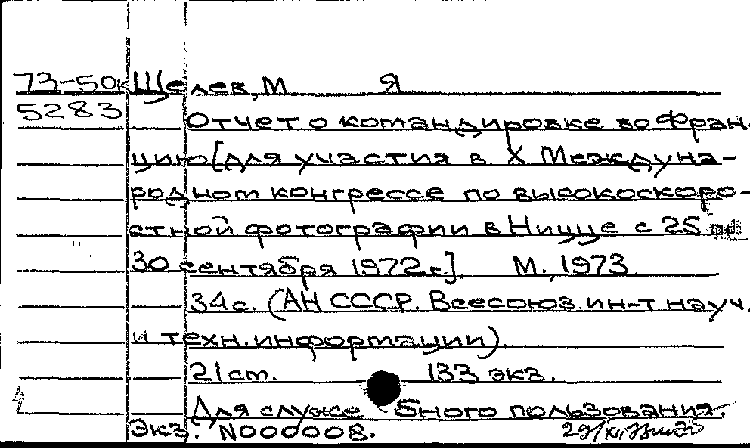 73-50к Щелев, М. Я
5283
Отчет о командировке во Фран-
цию [для участия в X Междуна-
родном конгрессе по высокоскоро-
стной фотографии в Ницце с 25 по
30 сентября 1972г.]. М., 1973.
34с. (АН СССР. Всесоюз. ин-т науч.
и техн. информации).
21 см. 133 экз.
Для служебного пользования.
Экз. N000008.